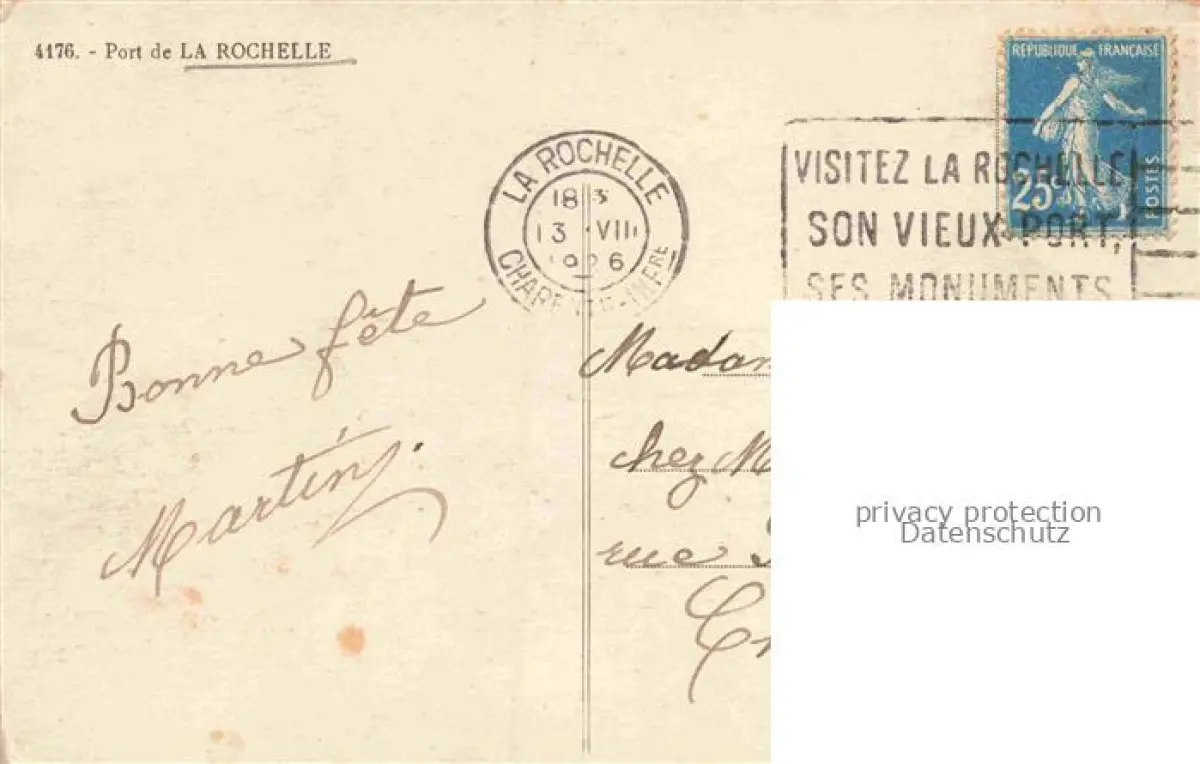 4176. - Port de LA ROCHELLE
REPUBLIQUE FRANÇAISE
25c
POSTES
LA ROCHELLE
13 VIII
CHARENTE-INFRE
VISITEZ LA ROCHELLE
SON VIEUX PORT,
SES MONUMENTS
Bonne fête
Madam
chez M
rue
privacy protection
Datenschutz